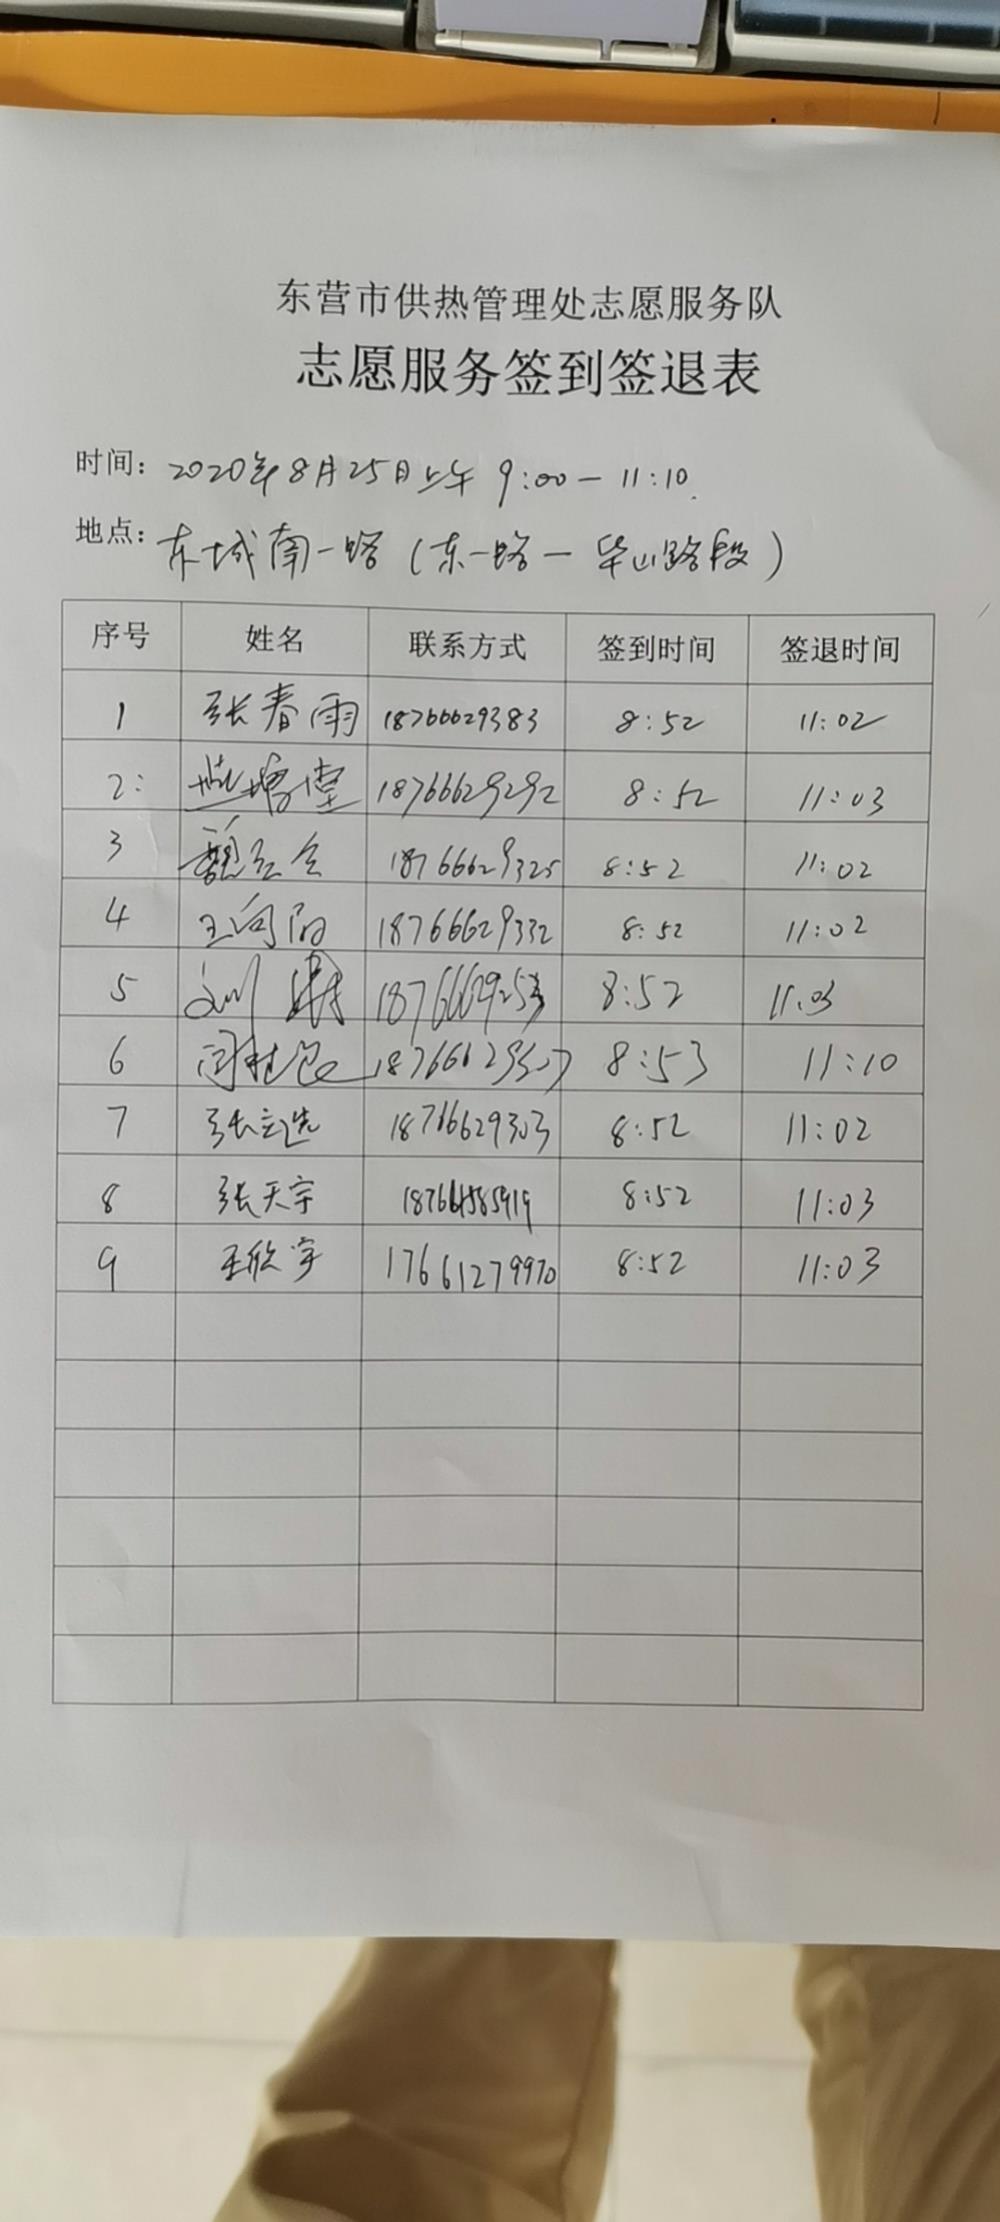 东营市供热管理处志愿服务队
志愿服务签到签退表
时间: 2020年8月25日上午 9:00-11:10
地点: 东城南一路(东一路一华山路段)
序号 姓名 联系方式 签到时间 签退时间
1 张春雨 18766629383 8:52 11:02
2: 18766629292 8:52 11:03
3 18766629325 8:52 11:02
4 王向阳 18766629332 8:52 11:02
5 刘 8:52 11:03
6 8:53 11:10
7 张立选 18766629303 8:52 11:02
8 张天宇 8:52 11:03
9 王欣宇 17661279970 8:52 11:03